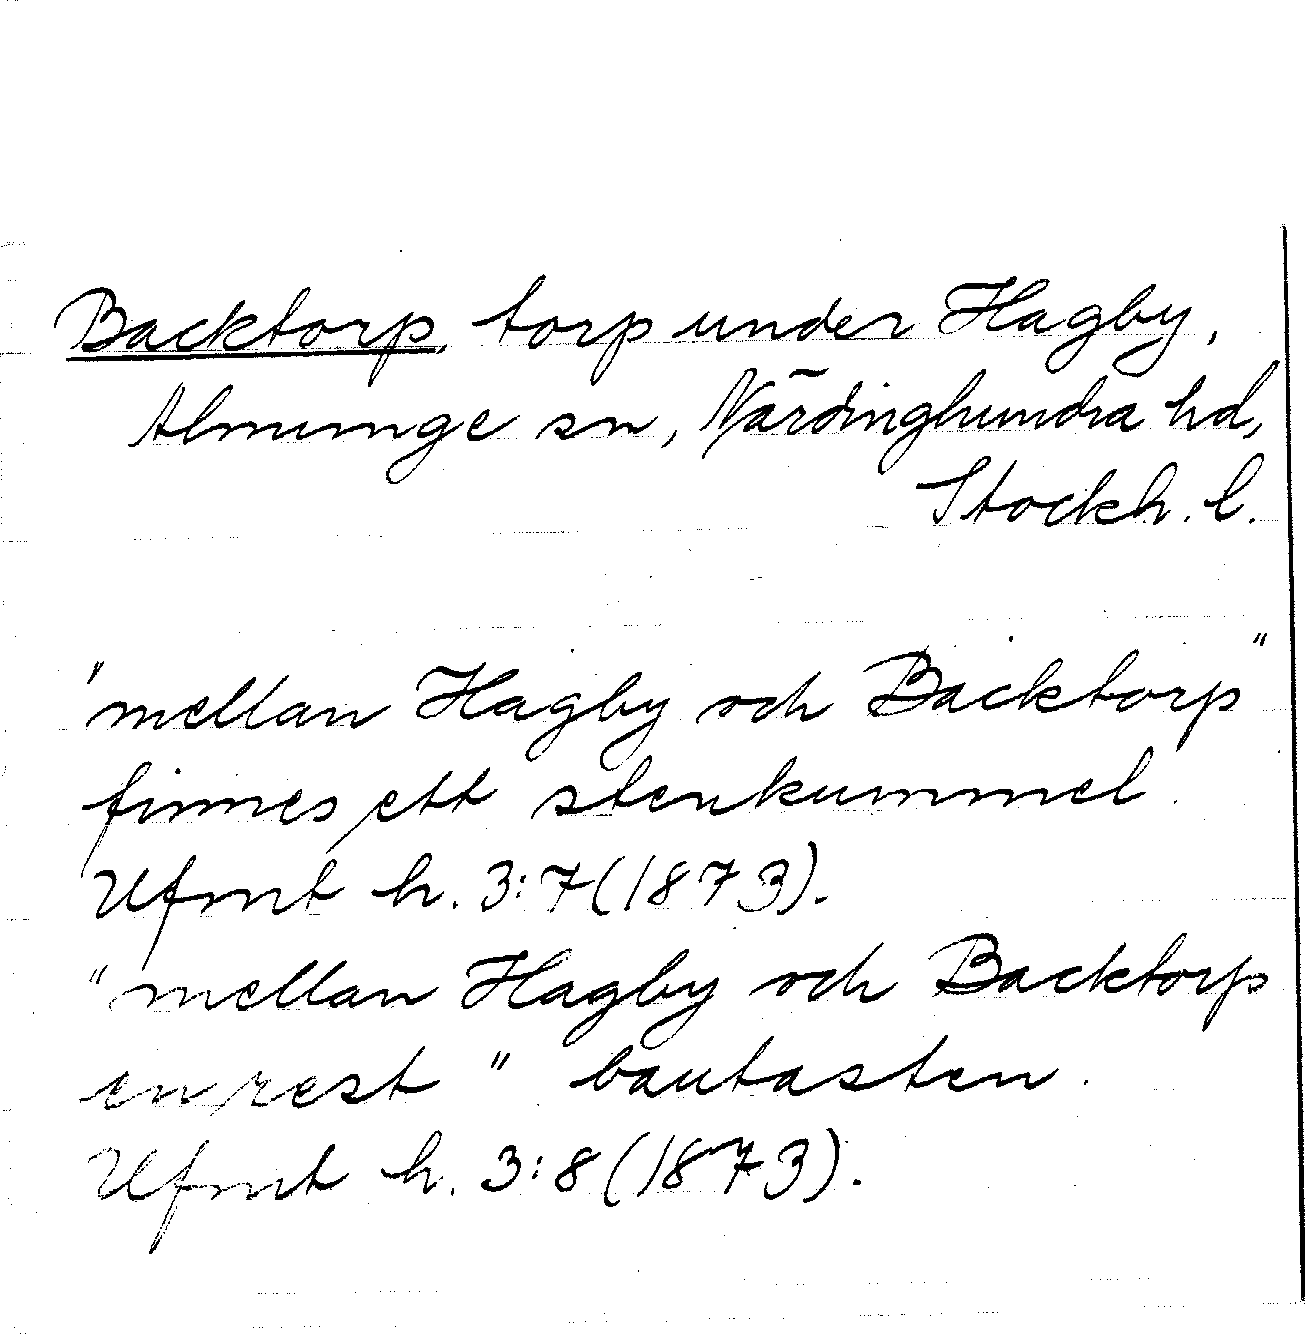 Backtorp, torp under Hagby,
Almunge sn, Närdinghundra hd,
Stockh. l.
"mellan Hagby och Backtorp"
finnes ett stenkummel.
Ufmt h. 3:7 (1873).
"mellan Hagby och Backtorp
en rest" bautasten.
Ufmt h. 3:8 (1873).